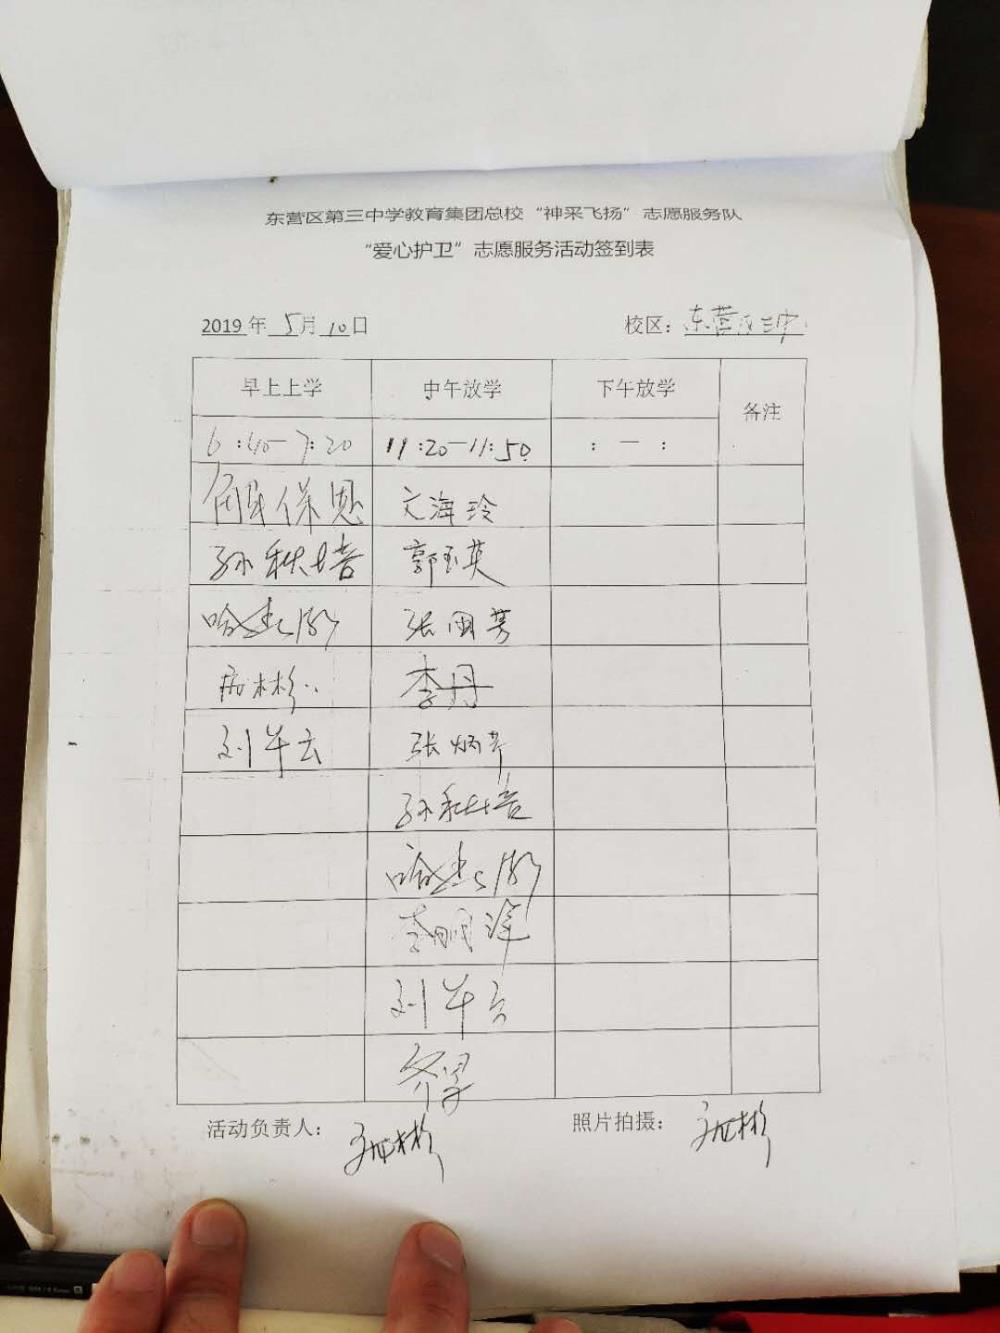 东营区第三中学教育集团总校“神采飞扬”志愿服务队
“爱心护卫”志愿服务活动签到表
2019年5月10日 校区：东营区三中
早上上学 中午放学 下午放学 备注
6:40—7:20 11:20—11:50 : — :
保恩 文海玲
孙秋培 郭玉英
张国芳
李丹
刘军云 张炳芹
孙秋培
李明泽
刘军云
齐
活动负责人： 照片拍摄：